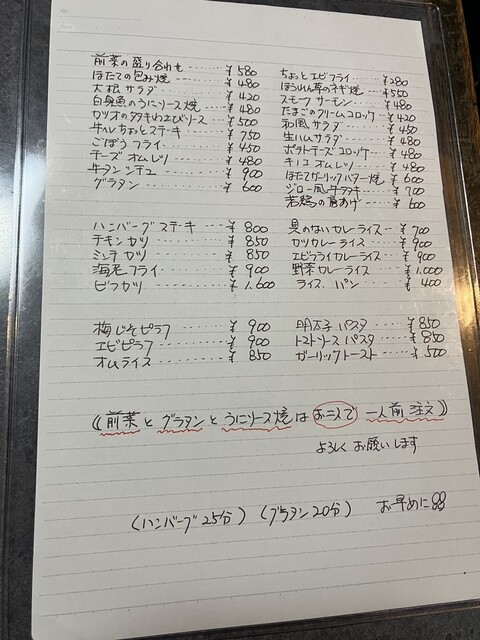 前菜の盛り合わせ ‥‥ ¥580
ほたての包み焼 ‥‥‥ ¥480
大根サラダ ‥‥‥‥ ¥420
白身魚のうにソース焼 ‥‥ ¥480
カツオのタタキわさびソース ‥‥ ¥500
牛ヘレちょっとステーキ ‥‥ ¥750
ごぼうフライ ‥‥‥‥ ¥450
チーズオムレツ ‥‥‥ ¥480
牛タンシチュー ‥‥‥ ¥900
グラタン ‥‥‥‥‥ ¥600
ちょっとエビフライ ‥‥‥ ¥280
ほうれん草のネギ焼 ‥‥ ¥550
スモークサーモン ‥‥‥ ¥480
たまごのクリームコロッケ ‥‥ ¥420
和風サラダ ‥‥‥‥ ¥450
生ハムサラダ ‥‥‥‥ ¥480
ポテトチーズコロッケ ‥‥ ¥480
キノコオムレツ ‥‥‥ ¥480
ほたてガーリックバター焼 ‥ ¥600
ジロー風牛タタキ ‥‥‥ ¥700
若鶏の唐あげ ‥‥‥ ¥600
ハンバーグステーキ ‥‥‥ ¥800
チキンカツ ‥‥‥‥‥ ¥850
ミンチカツ ‥‥‥‥‥ ¥850
海老フライ ‥‥‥‥‥ ¥900
ビフカツ ‥‥‥‥‥ ¥1.600
具のないカレーライス ‥‥ ¥700
カツカレーライス ‥‥‥ ¥900
エビフライカレーライス ‥‥ ¥900
野菜カレーライス ‥‥‥ ¥1.000
ライス、パン ‥‥‥‥ ¥400
梅じそピラフ ‥‥‥‥ ¥900
エビピラフ ‥‥‥‥ ¥900
オムライス ‥‥‥‥ ¥850
明太子パスタ ‥‥‥ ¥850
トマトソースパスタ ‥‥‥ ¥850
ガーリックトースト ‥‥‥ ¥500
((前菜とグラタンとうにソース焼はお二人で一人前注文))
よろしくお願いします
(ハンバーグ25分) (グラタン20分) お早めに